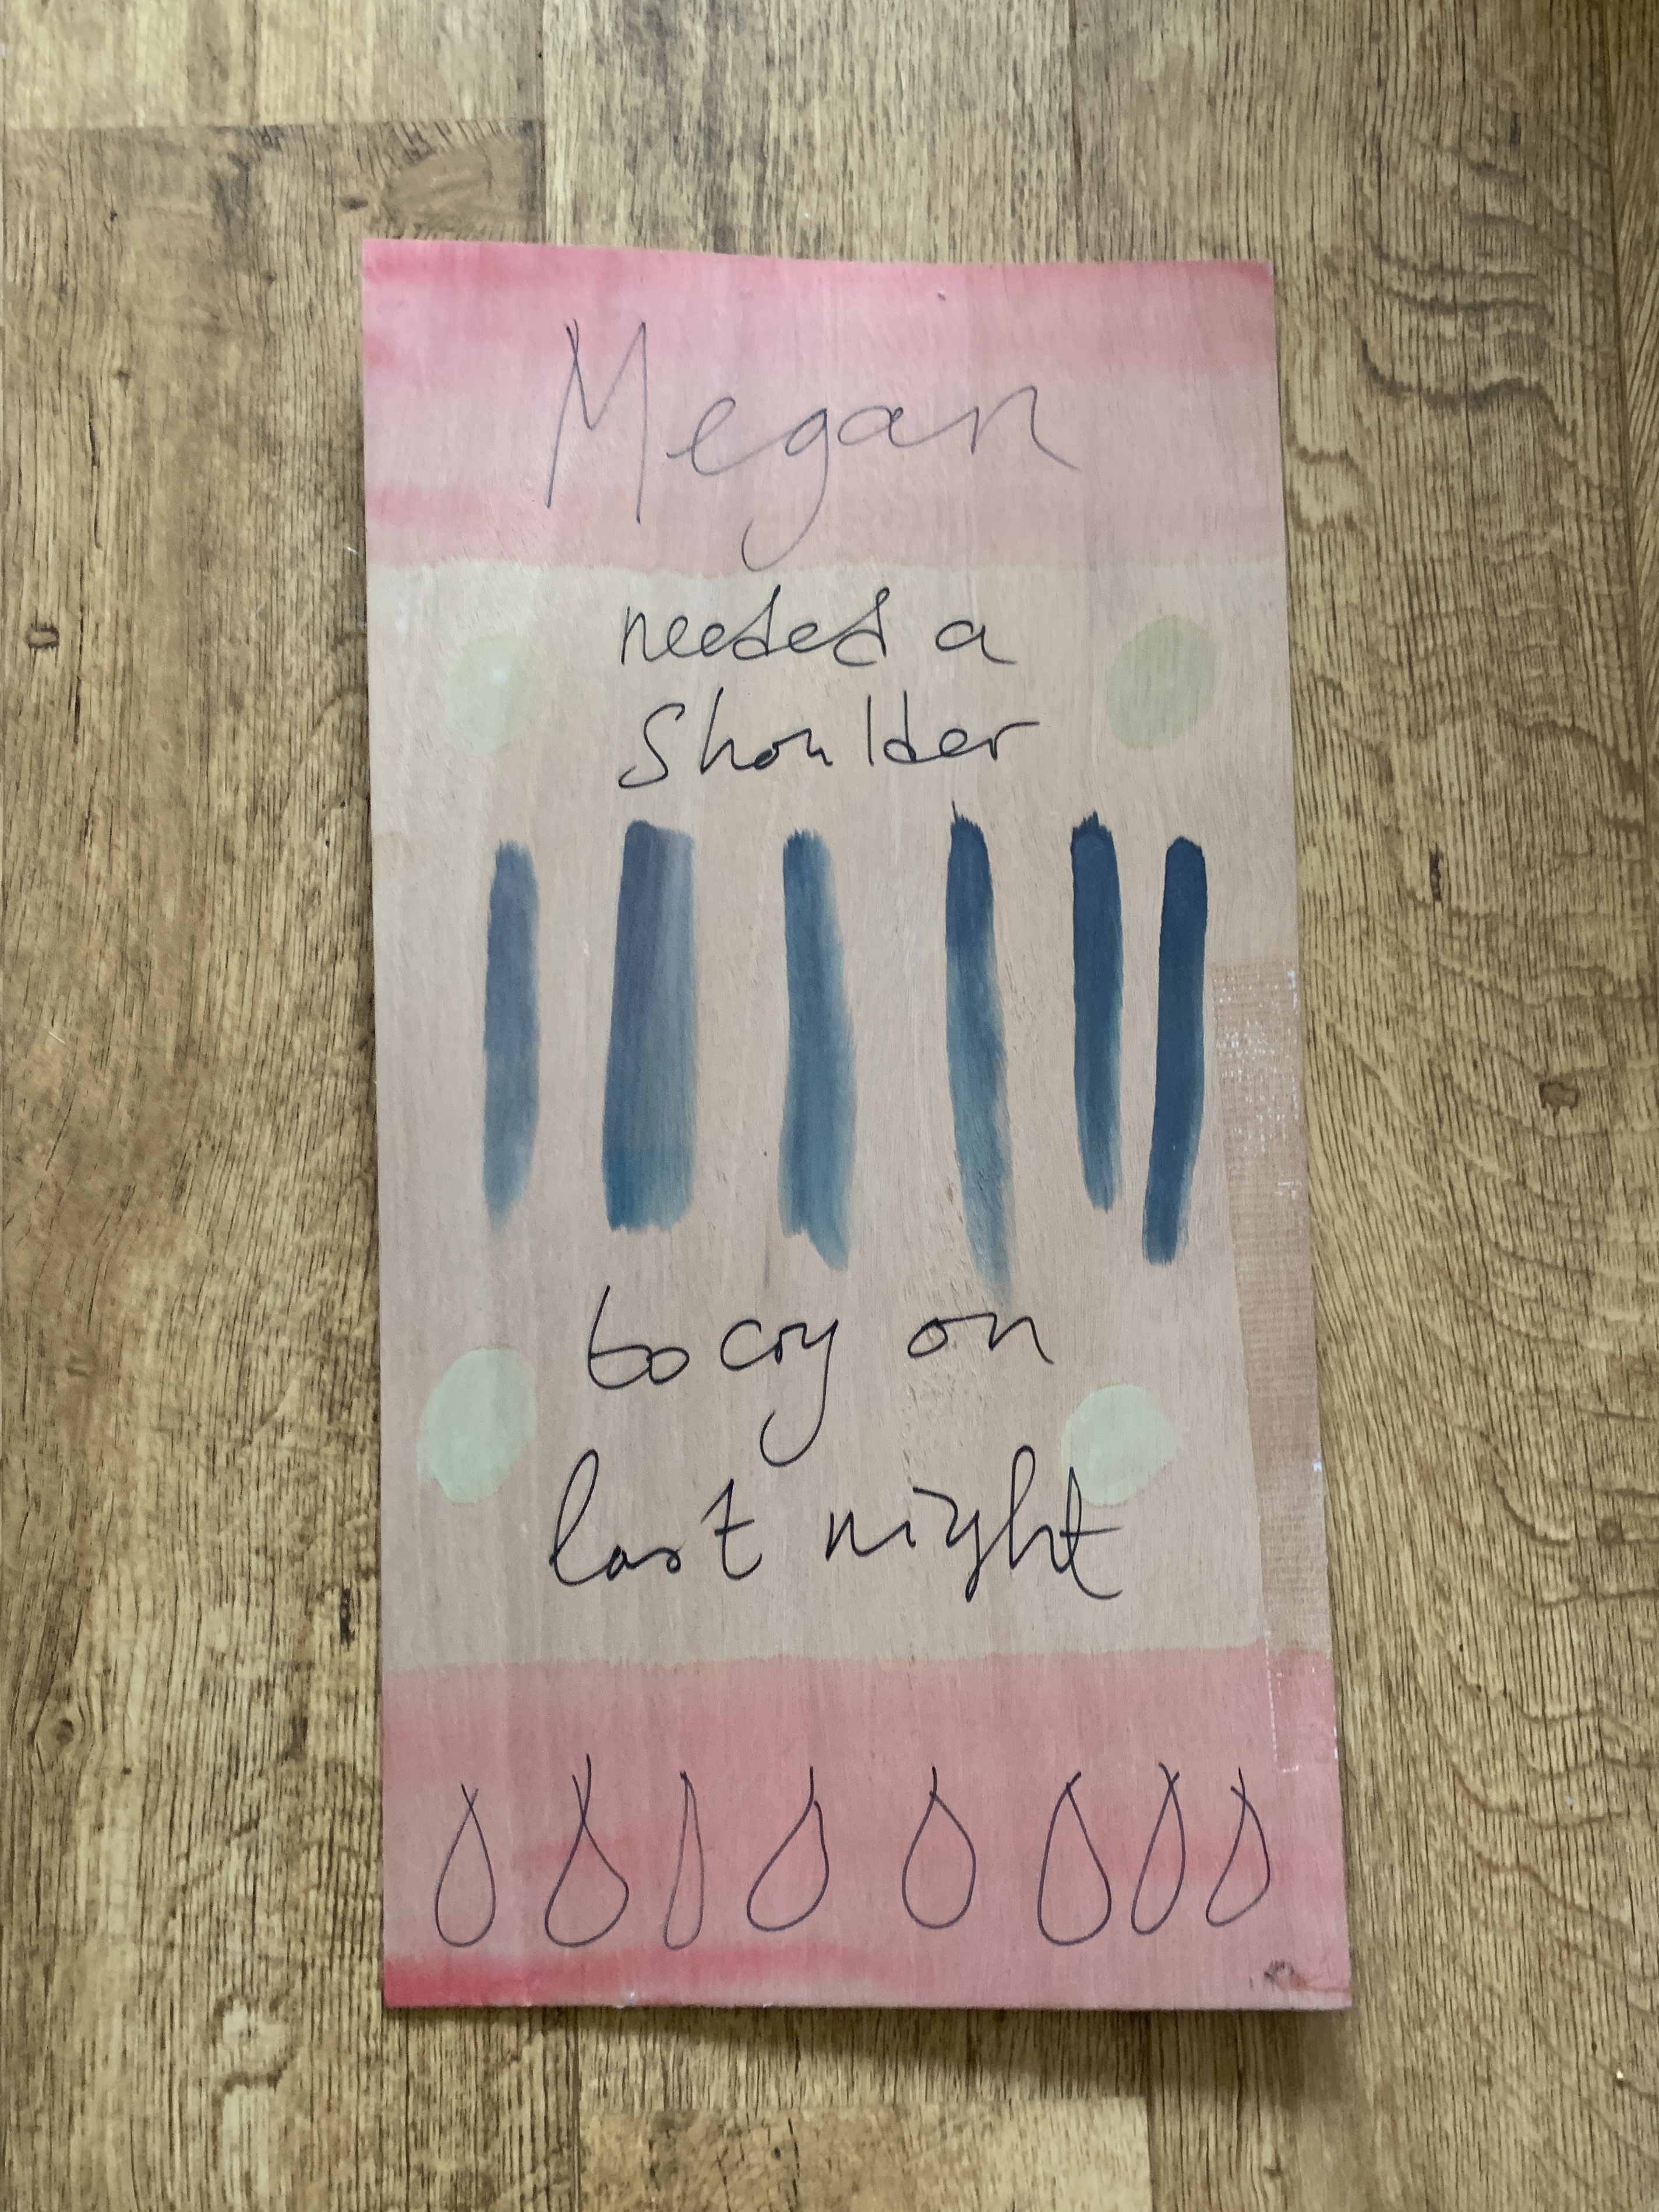 Megan
needed a
Shoulder
to cry on
last night